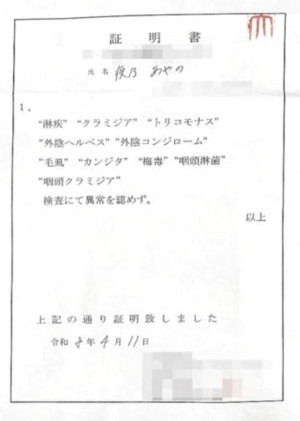 証明書
氏名 俟乃 あやの
1、
"淋疾" "クラミジア" "トリコモナス"
"外陰ヘルペス" "外陰コンジローム"
"毛虱" "カンジタ" "梅毒" "咽頭淋菌"
"咽頭クラミジア"
検査にて異常を認めず。
以上
上記の通り証明致しました
令和 8年 4月 11日